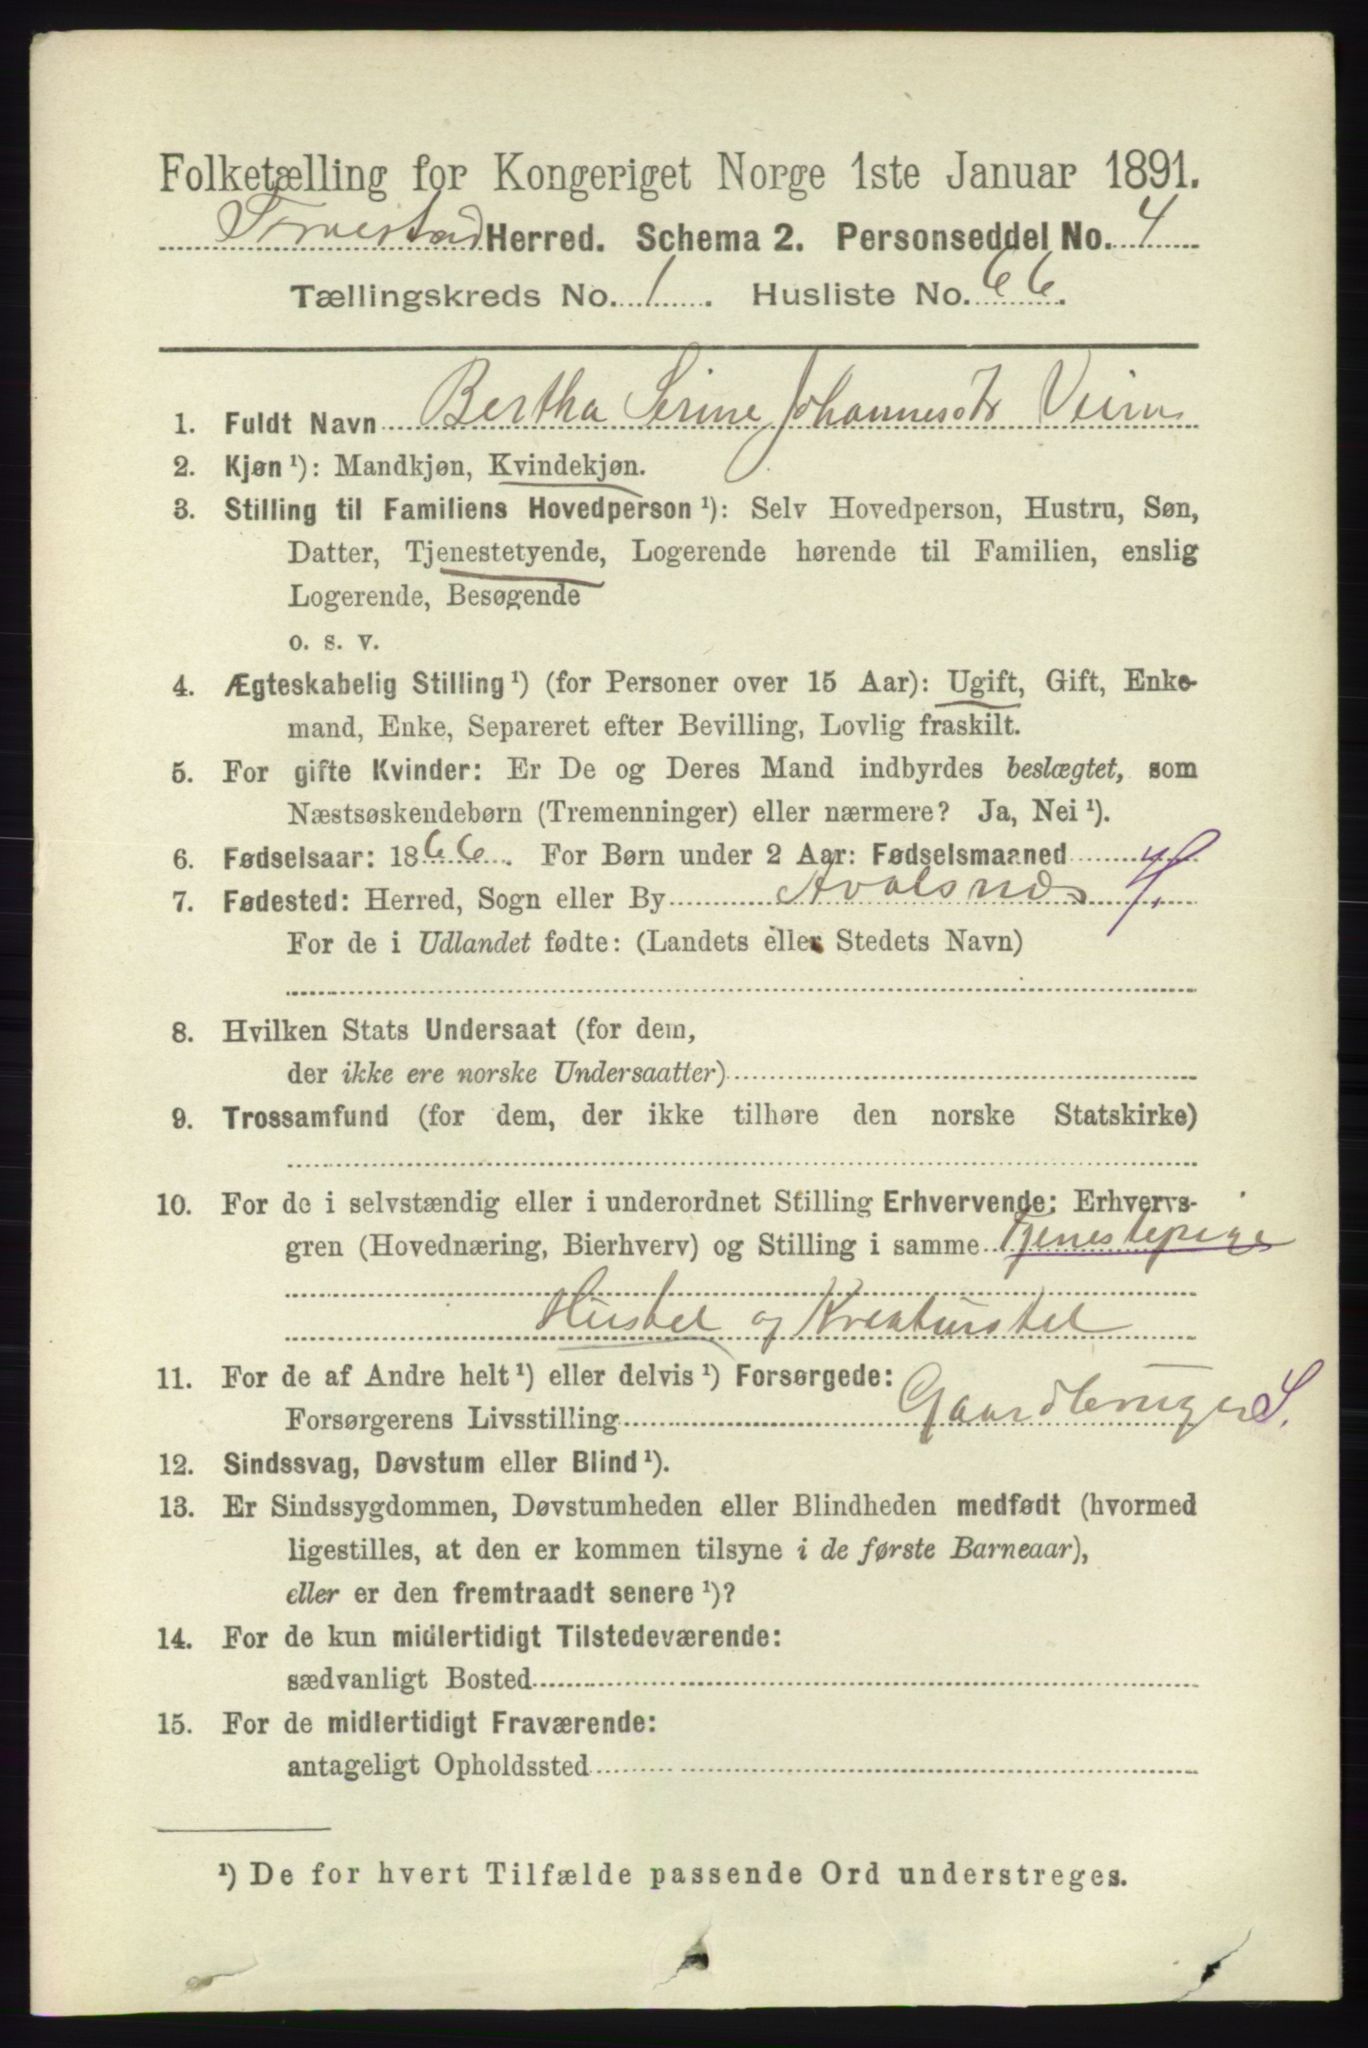 Folketælling for Kongeriget Norge 1ste Januar 1891.
Torvestad Herred. Schema 2. Personseddel No. 4
Tællingskreds No. 1. Husliste No. 66.
1. Fuldt Navn Bertha Serine Johannesdtr
2. Kjøn ¹): Mandkjøn, Kvindekjøn.
3. Stilling til Familiens Hovedperson ¹): Selv Hovedperson, Hustru, Søn,
Datter, Tjenestetyende, Logerende hørende til Familien, enslig
Logerende, Besøgende
o. s. v.
4. Ægteskabelig Stilling ¹) (for Personer over 15 Aar): Ugift, Gift, Enke-
mand, Enke, Separeret efter Bevilling, Lovlig fraskilt.
5. For gifte Kvinder: Er De og Deres Mand indbyrdes beslægtet, som
Næstsøskendebørn (Tremenninger) eller nærmere? Ja, Nei ¹).
6. Fødselsaar: 1866. For Børn under 2 Aar: Fødselsmaaned
7. Fødested: Herred, Sogn eller By Avalsnæs
For de i Udlandet fødte: (Landets eller Stedets Navn)
8. Hvilken Stats Undersaat (for dem,
der ikke ere norske Undersaatter)
9. Trossamfund (for dem, der ikke tilhøre den norske Statskirke)
10. For de i selvstændig eller i underordnet Stilling Erhvervende: Erhvervs-
gren (Hovednæring, Bierhverv) og Stilling i samme Tjenestepige
Husstel og Kreaturstel
11. For de af Andre helt ¹) eller delvis ¹) Forsørgede:
Forsørgerens Livsstilling Gaardbruger S.
12. Sindssvag, Døvstum eller Blind ¹).
13. Er Sindssygdommen, Døvstumheden eller Blindheden medfødt (hvormed
ligestilles, at den er kommen tilsyne i de første Barneaar),
eller er den fremtraadt senere ¹)?
14. For de kun midlertidigt Tilstedeværende:
sædvanligt Bosted
15. For de midlertidigt Fraværende:
antageligt Opholdssted
¹) De for hvert Tilfælde passende Ord understreges.